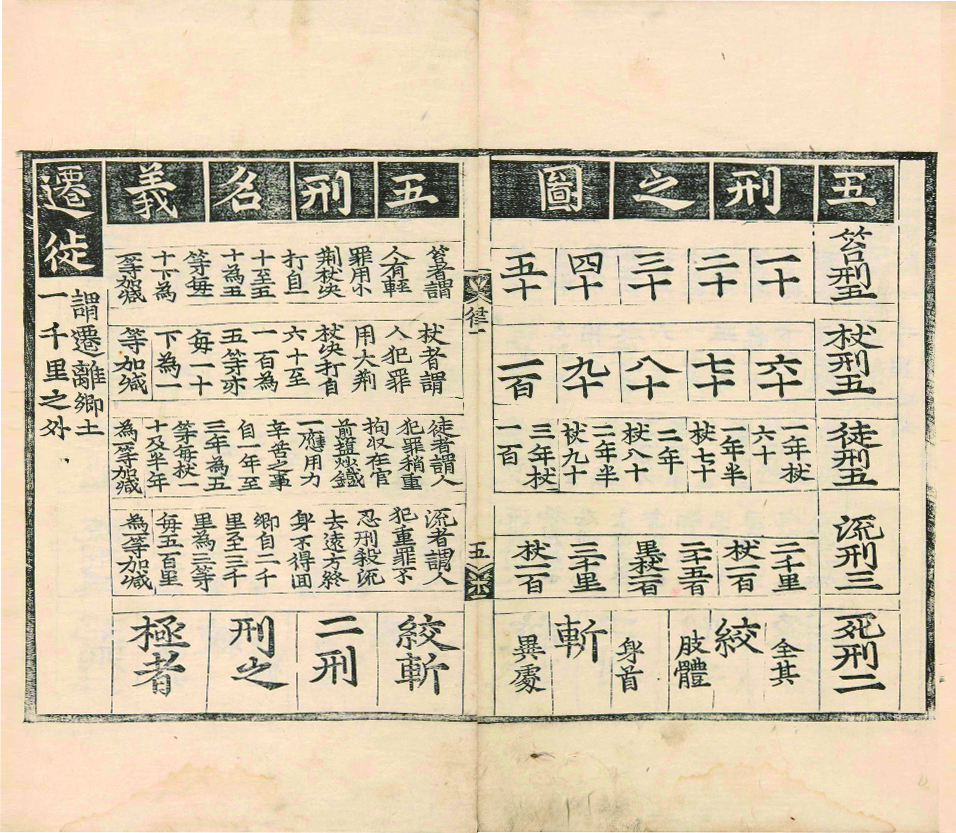 五刑之圖
笞刑五
一十
二十
三十
四十
五十
杖刑五
六十
七十
八十
九十
一百
徒刑五
一年杖
六十
一年半
杖七十
二年
杖八十
二年半
杖九十
三年杖
一百
流刑三
二千里
杖一百
二千五百
里杖一百
三千里
杖一百
死刑二
絞
全其
肢體
斬
身首
異處
律一
五
五刑名義
笞者謂
人有輕
罪用小
荊杖決
打自一
十至五
十為五
等每一
十下為
一等加減
杖者謂
人犯罪
用大荊
杖決打自
六十至
一百為
五等亦
每一十
下為一
等加減
徒者謂人
犯罪稍重
拘収在官
煎塩炒鐵
一應用力
辛苦之事
自一年至
三年為五
等每杖一
十及半年
為一等加減
流者謂人
犯重罪不
忍刑殺流
去遠方終
身不得囬
鄉自二千
里至三千
里為三等
每五百里
為一等加減
絞斬
二刑
刑之
極者
遷徙
謂遷離鄉土
一千里之外